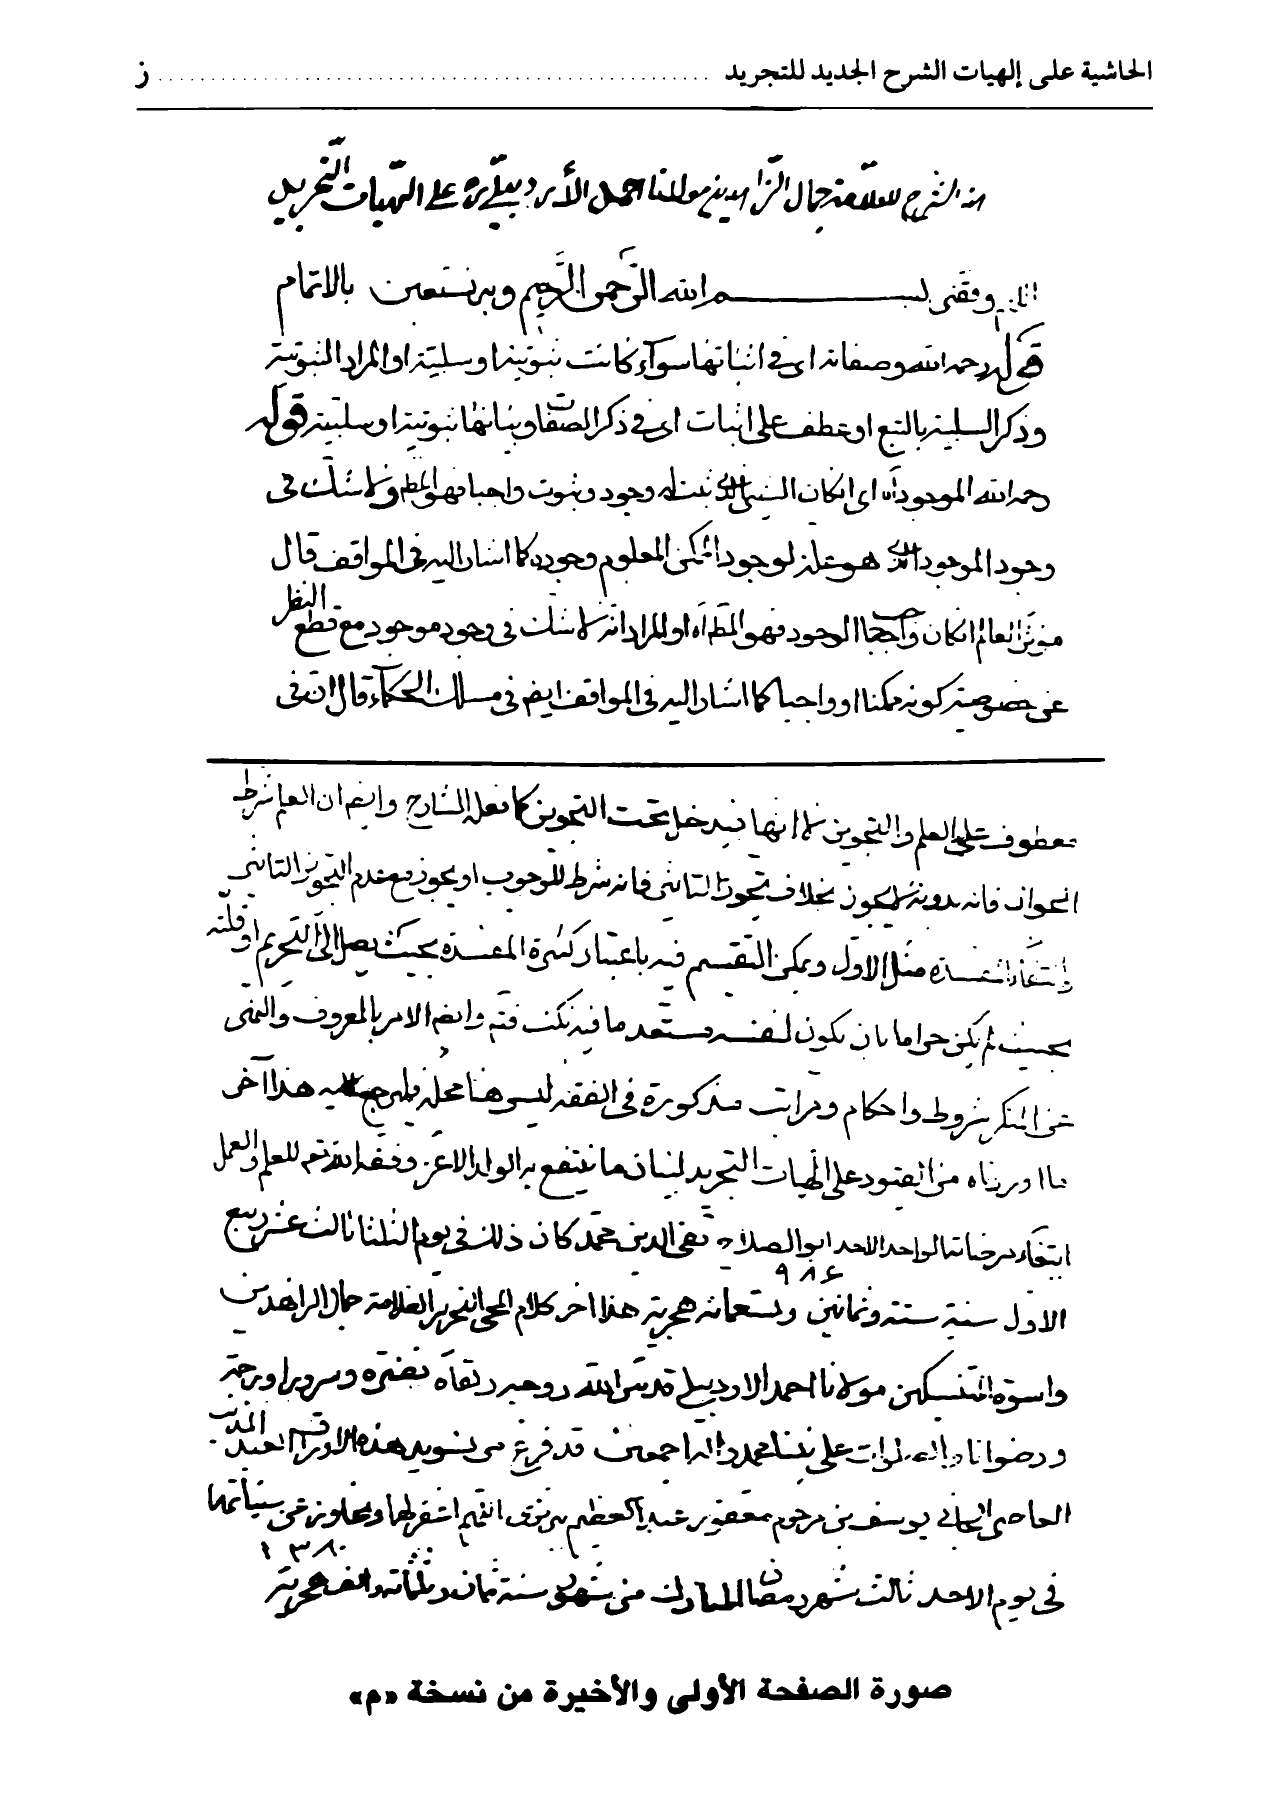 الحاشية على إلهيات الشرح الجديد للتجريد ........................................ ز
الشرح للعلامة جمال الزاهدين مولانا احمد الأردبيلي ره على الهيات التجريد
وفقني بسم الله الرحمن الرحيم وبه نستعين بالاتمام
قوله رحمه الله وصفاته اى فى اثباتها سوآء كانت ثبوتية او سلبية او المراد الثبوتية
وذكر السلبية بالتبع او عطف على اثبات اى فى ذكر الصفات وبيانها ثبوتية او سلبية قوله
رحمه الله الموجود آه اى ان كان الشىء الذى ثبت له وجود وثبوت واجبا فهو المط ولا شك فى
وجود الموجود الذى هو علة لوجود الممكن المعلوم وجوده كما اشار اليه فى المواقف قال
مؤثر العالم ان كان واجب الوجود فهو المط آه او المراد انه لا شك فى وجود موجود مع قطع النظر
عن خصوصية كونه ممكنا او واجبا كما اشار اليه فى المواقف ايضا فى مسلك الحكماء قال ان فى
معطوف على العلم والتجويز لا انها تدخل تحت التجويز كما فعله الشارح وايضا ان العلم شرط
الجواز فانه بدونه لا يجوز بخلاف تجويز التاثير فانه شرط للوجوب او يجوز مع عدم التجويز التاثير
وانتفاء المفسدة مثل الاول ويمكن التقسيم فيه باعتبار كثرة المفسدة بحيث يصل الى التحريم او قلته
بحيث لم يكن حراما بان يكون لنفسه مستعد ما فيه نكت فتم وايضا الامر بالمعروف والنهى
عن المنكر شروط واحكام ومراتب مذكورة فى الفقه ليس هنا محله فليرجع اليه هذا آخر
ما اوردناه من القيود على الهيات التجريد لبيان ما ينتفع به الولد الاعز وفقه الله تعم للعلم والعمل
ابتغاء مرضات الواحد الاحد ابو الصلاح تقى الدين محمد كان ذلك فى يوم الثلثا ثالث عشر ربيع
٩٨٦
الاول سنة ستة وثمانين وتسعمائه هجرية هذا اخر كلام المحشى النحرير العلامة جمال الزاهدين
واسوة المتنسكين مولانا احمد الاردبيلى قدس الله روحه ولقاه نضرة وسرورا ورحمة
ورضوانا والصلوات على نبينا محمد وآله اجمعين قد فرغ من تسويد هذه الاوراق العبد المذنب
العاصى الجانى يوسف بن مرحوم مغفور عبد العظيم غفر لهما وتجاوز عن سيئاتهما
١٣٠٨
فى يوم الاحد ثالث شهر رمضان المبارك من شهور سنة ثمان وثلثمائة والف هجرية
صورة الصفحة الأولى والأخيرة من نسخة «م»